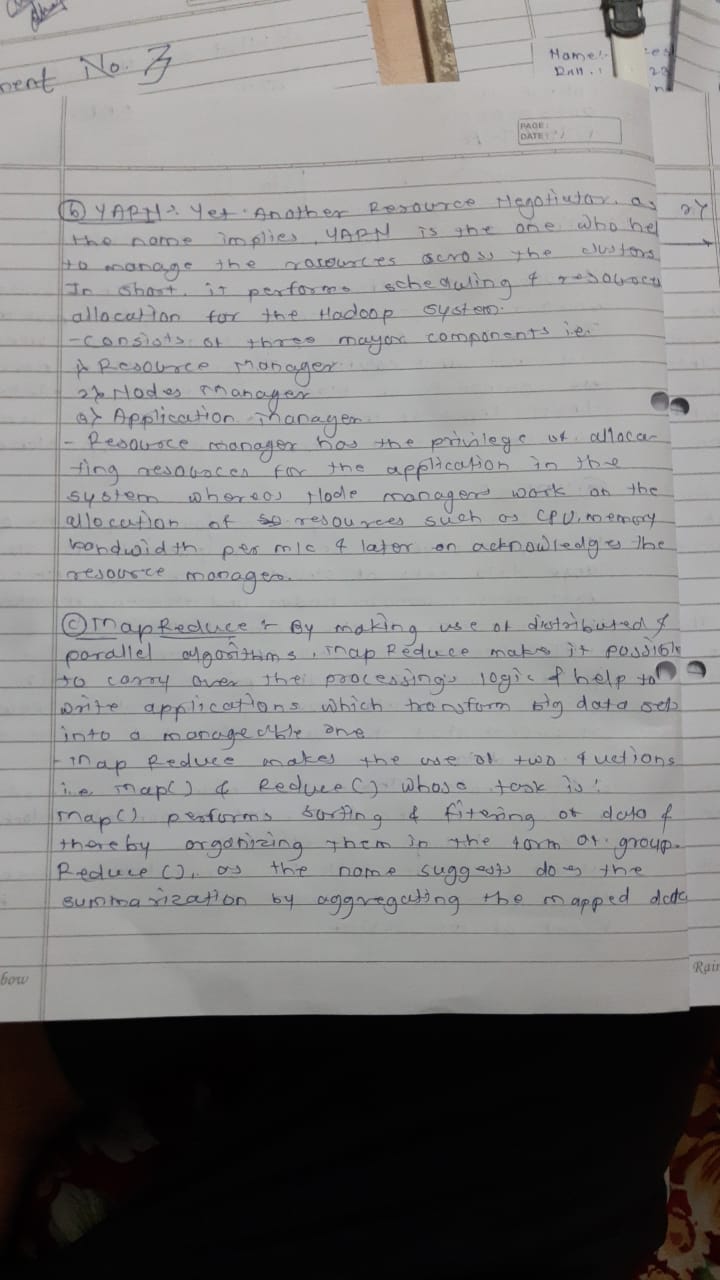 ment No. 3
Name:
PAGE:
DATE:
ⓑ YARN :- Yet Another Resource Negotiator, as
the name implies, YARN is the one who hel
to manage the rasources across the clusters
In short, it performs scheduling & resource
allocation for the Hadoop system.
- Consists of three mayor components i.e.
1) Resource Manager
2) Nodes Manager
3) Application Manager
- Resource manager has the privilege of alloca-
ting resources for the application in the
system whereas Node managers work on the
allocation of resources such as CPU, memory
bandwidth per m/c & later on acknowledges the
resource manager.
ⓒ MapReduce :- By making use of distributed &
parallel algorithms, Map Reduce makes it possible
to carry over the processing's logic & help to
write applications which transform big data sets
into a manageable one
- Map Reduce makes the use of two fuctions
i.e. Map() & Reduce() whose task is:
Map() performs sorting & fitering of data &
thereby organizing them in the form of group.
Reduce(), as the name suggests does the
summarization by aggregating the mapped data
bow
Rain